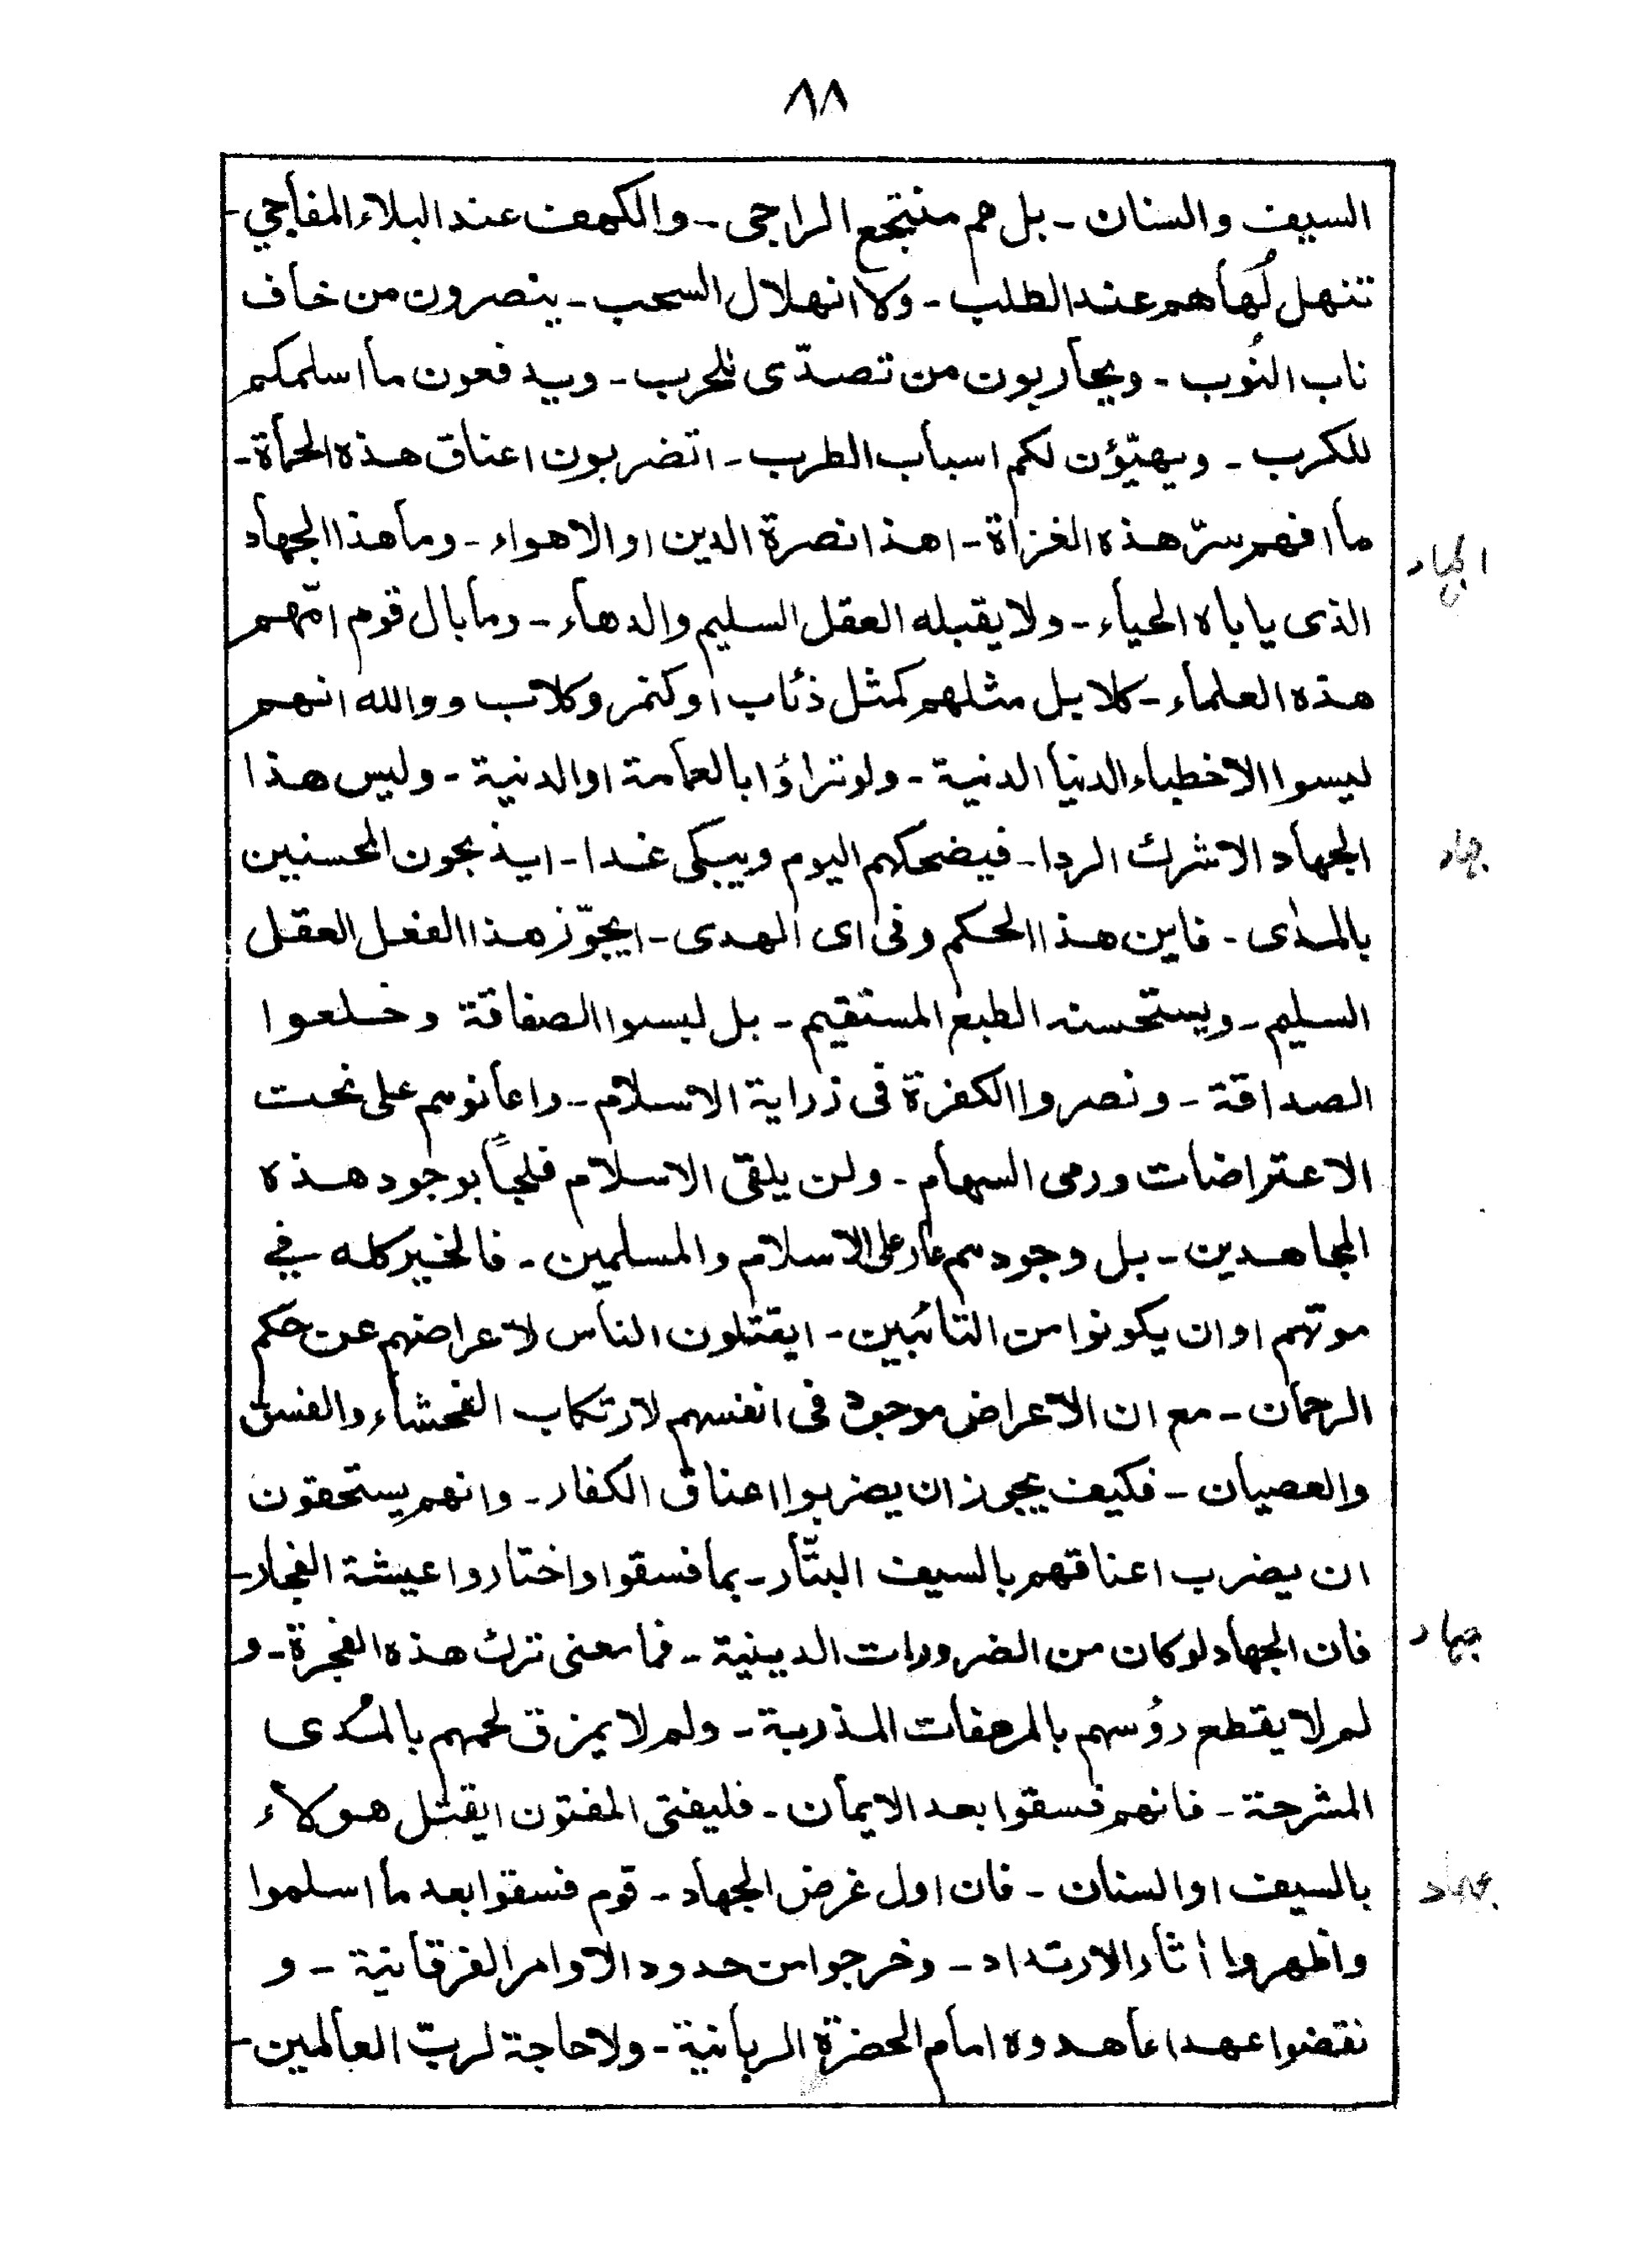 ٨٨
السيف والسنان - بل هم منتجع الراجى - والكهف عند البلاء المفاجي -
تنهل لُهاهم عند الطلب - ولا انهلال السحب - ينصرون من خاف
ناب النُوب - ويحاربون من تصدّى للحرب - ويدفعون ما اسلمكم
للكرب - ويهيّؤن لكم اسباب الطرب - اتضربون اعناق هذه الحماة -
ما افهم سرّ هذه الغزاة - اهذا نصرة الدين او الاهواء - وما هذا الجهاد
الذى يأباه الحياء - ولا يقبله العقل السليم والدهاء - وما بال قوم امّهم
هذه العلماء - كلا بل مثلهم كمثل ذئاب او كنمر وكلاب ووالله انهم
ليسوا الا خطباء الدنيا الدنية - ولو تراؤا بالعمامة او الدنية - وليس هذا
الجهاد الا شرك الردا - فيضحكهم اليوم ويبكى غدا - ايذبحون المحسنين
بالمدٰى - فاين هذا الحكم وفى اى الهدى - ايجوّز هذا الفعل العقل
السليم - ويستحسنه الطبع المستقيم - بل لبسوا الصفاقة وخلعوا
الصداقة - ونصروا الكفرة فى زراية الاسلام - واعانوهم على نحت
الاعتراضات ورمى السهام - ولن يلقى الاسلام فلجًا بوجود هذه
المجاهدين - بل وجودهم عار على الاسلام والمسلمين - فالخير كله في
موتهم او ان يكونوا من التائبين - ايقتلون الناس لاعراضهم عن حكم
الرحمان - مع ان الاعراض موجود فى انفسهم لارتكاب الفحشاء والفسق
والعصيان - فكيف يجوز ان يضربوا اعناق الكفار - وانهم يستحقون
ان يضرب اعناقهم بالسيف البتّار - بما فسقوا واختاروا عيشة الفجار -
فان الجهاد لو كان من الضرورات الدينية - فما معنى ترك هذه الفجرة - و
لم لا يقطع رؤسهم بالمرهفات المذربة - ولم لا يمزق لحمهم بالمُدى
المشرحة - فانهم فسقوا بعد الايمان - فليفتى المفتون ايقتل هولاء
بالسيف او السنان - فان اول غرض الجهاد - قوم فسقوا بعد ما اسلموا
واظهروا أثار الارتداد - وخرجوا من حدود الاوامر الفرقانية - و
نقضوا عهدا عاهدوه امام الحضرة الربانية - ولا حاجة لربّ العالمين -
الجهاد
جهاد
جهاد
جهاد